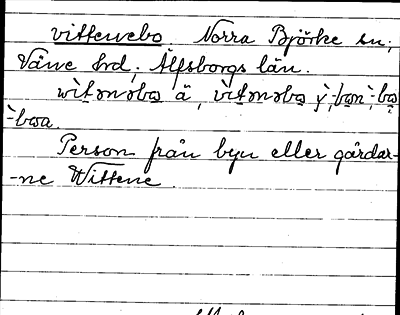 vittenebo Norra Björke sn;
Väne hrd; Älfsborgs län.
wìt̤ənəbɷ ä, vìt̤ənəbɷ y, -bɷn, -bɷ
-bɷa
Person från byn eller gårdar-
-ne Wittene.